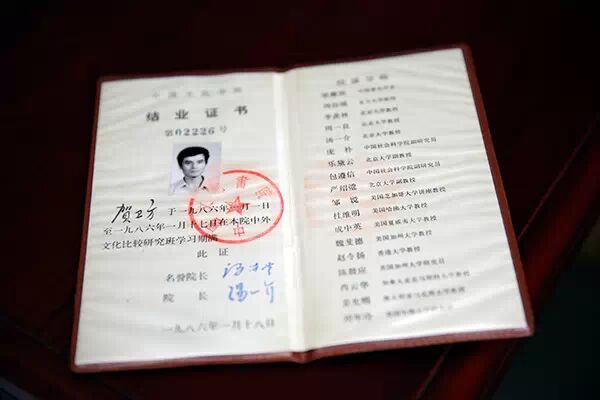 中国文化书院
结业证书
第02226号
贺卫方 于一九八六年一月一日
至一九八六年一月十七日在本院中外
文化比较研究班学习期满
此证
名誉院长 冯友兰
院长 汤一介
一九八六年一月十八日
授课导师
梁漱溟 中国著名学者
北京大学教授
季羡林 北京大学教授
周一良 北京大学教授
汤一介 北京大学教授
庞朴 中国社会科学院副研究员
乐黛云 北京大学副教授
包遵信 中国社会科学院副研究员
严绍璗 北京大学副教授
邹谠 美国芝加哥大学讲座教授
杜维明 美国哈佛大学教授
成中英 美国夏威夷大学教授
魏斐德 美国加州大学教授
赵令扬 香港大学教授
陈鼓应 美国加州大学研究员
云华
姜允明